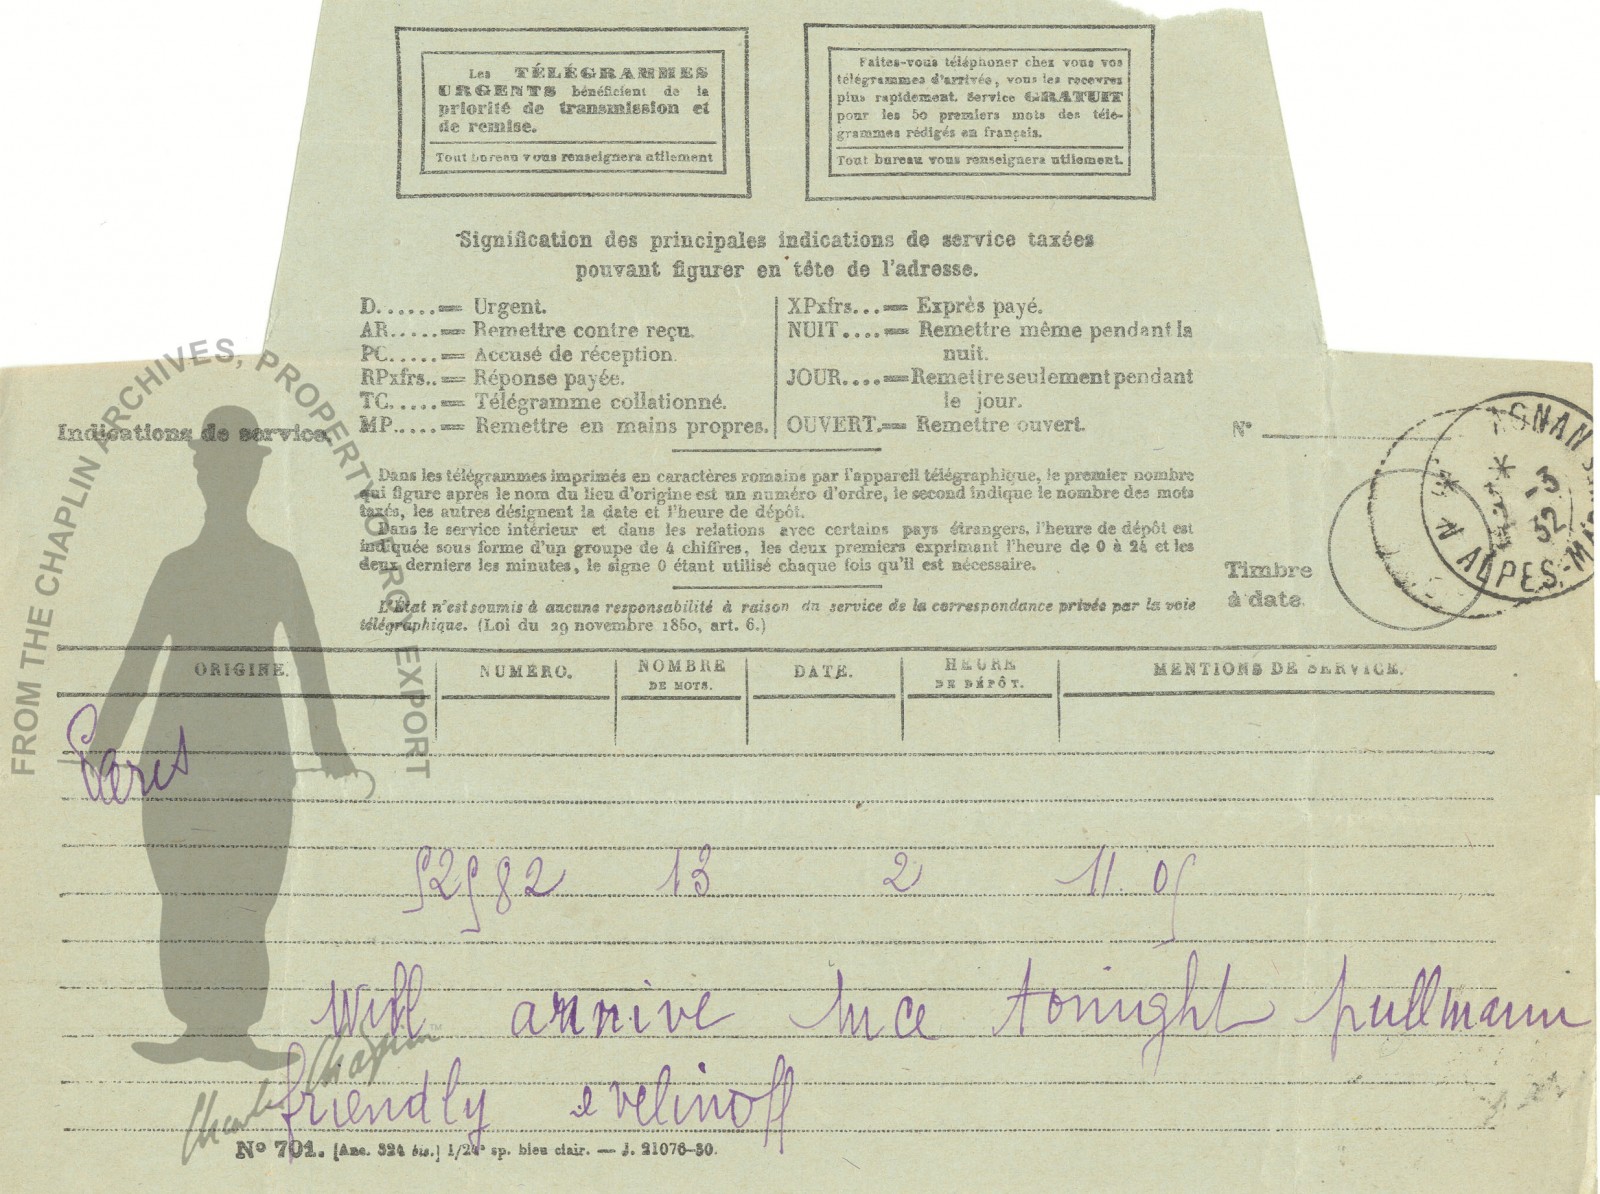 Les TÉLÉGRAMMES
URGENTS bénéficient de la
priorité de transmission et
de remise.
Tout bureau vous renseignera utilement
Faites-vous téléphoner chez vous vos
télégrammes d'arrivée, vous les recevrez
plus rapidement. Service GRATUIT
pour les 50 premiers mots des télé-
grammes rédigés en français.
Tout bureau vous renseignera utilement.
Signification des principales indications de service taxées
pouvant figurer en tête de l'adresse.
D......= Urgent.
AR......= Remettre contre reçu.
PC.....= Accusé de réception.
RPxfrs..= Réponse payée.
TC.....= Télégramme collationné.
MP.....= Remettre en mains propres.
XPxfrs...= Exprès payé.
NUIT....= Remettre même pendant la
nuit.
JOUR....= Remettre seulement pendant
le jour.
OUVERT.= Remettre ouvert.
Indications de service.
N°
Dans les télégrammes imprimés en caractères romains par l'appareil télégraphique, le premier nombre
qui figure après le nom du lieu d'origine est un numéro d'ordre, le second indique le nombre des mots
taxés, les autres désignent la date et l'heure de dépôt.
Dans le service intérieur et dans les relations avec certains pays étrangers, l'heure de dépôt est
indiquée sous forme d'un groupe de 4 chiffres, les deux premiers exprimant l'heure de 0 à 24 et les
deux derniers les minutes, le signe 0 étant utilisé chaque fois qu'il est nécessaire.
L'État n'est soumis à aucune responsabilité à raison du service de la correspondance privée par la voie
télégraphique. (Loi du 29 novembre 1850, art. 6.)
Timbre
à date.
-3
32
ALPES-MAR
ORIGINE. NUMÉRO. NOMBRE DE MOTS. DATE. HEURE DE DÉPÔT. MENTIONS DE SERVICE.
Paris
52582 13 2 11.05
Will arrive nice tonight pullmann
friendly evelinoff
N° 701. [Anc. 324 bis.] 1/24° sp. bleu clair. — J. 21076-30.
FROM THE CHAPLIN ARCHIVES, PROPERTY OF ROY EXPORT
Charles Chaplin™